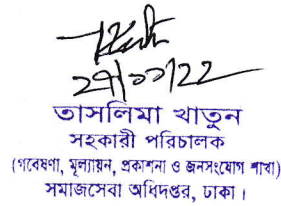 ২৭/১১/২২
তাসলিমা খাতুন
সহকারী পরিচালক
(গবেষণা, মূল্যায়ন, প্রকাশনা ও জনসংযোগ শাখা)
সমাজসেবা অধিদপ্তর, ঢাকা।